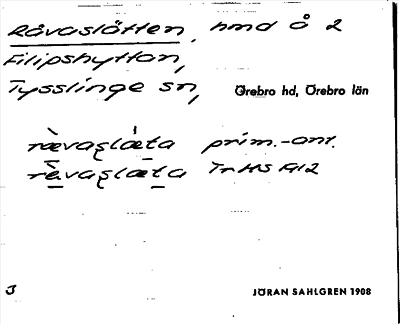 Rävaslätten, hmd Å 2
Filipshyttan,
Tysslinge sn, Örebro hd, Örebro län
rævaslæta prim.-ant.
rævaslæta TrHS 1912
J JÖRAN SAHLGREN 1908